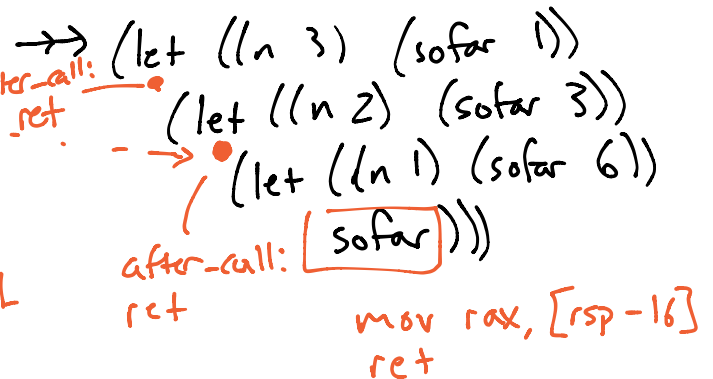 (let ((n 3) (sofar 1))
ter_call:
ret
(let ((n 2) (sofar 3))
(let ((n 1) (sofar 6))
sofar)))
after_call:
ret
mov rax, [rsp-16]
ret